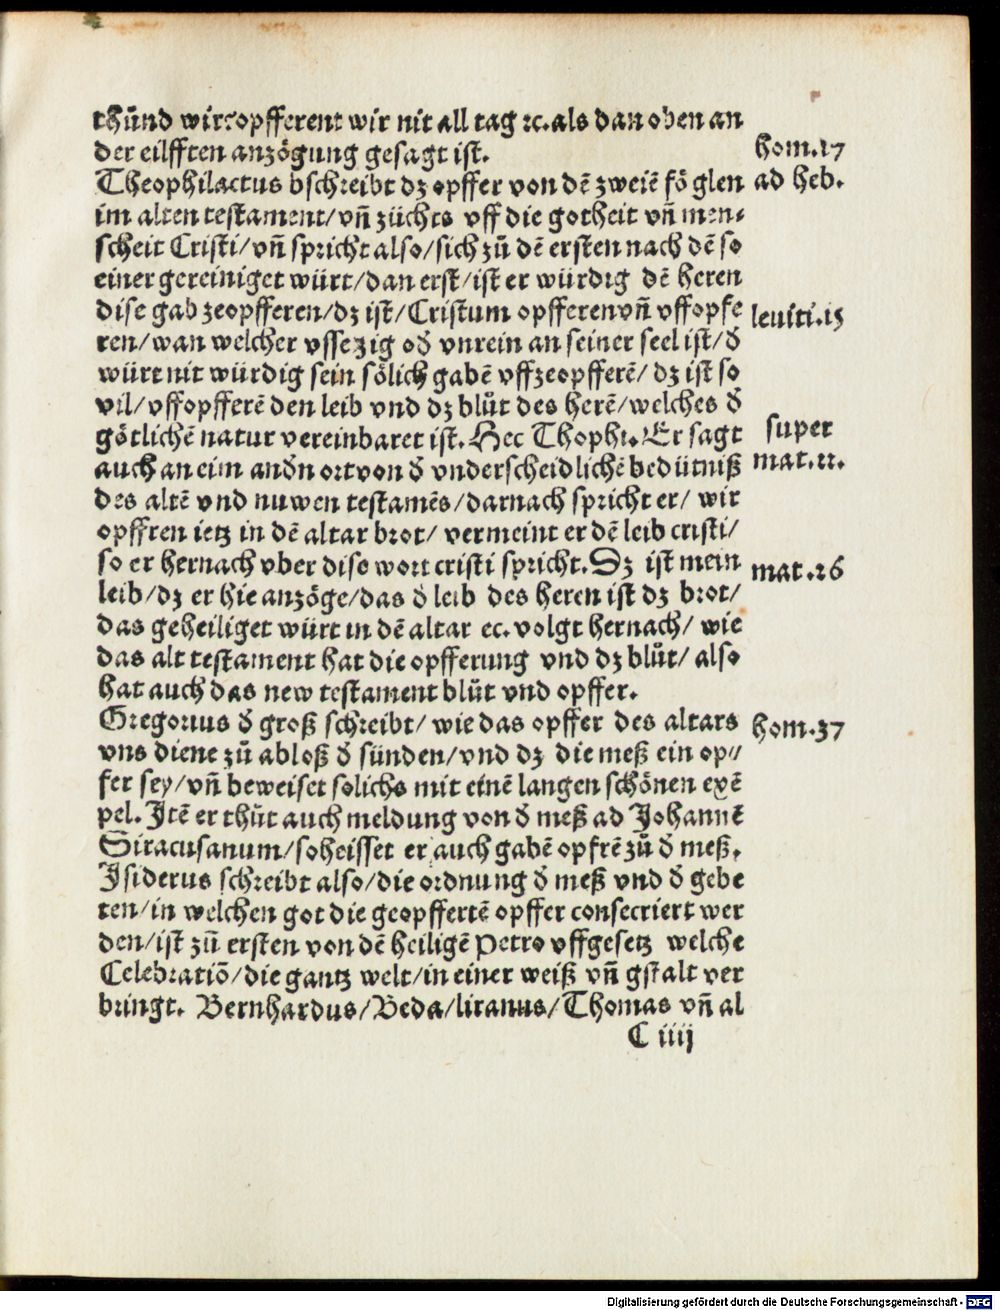 thůnd wir?opfferent wir nit all tag ꝛc. als dan oben an
der eilfften anzögung gesagt ist.
hom. 17
Theophilactus bschreibt dz opffer von dē zweiē föglen
ad heb.
im alten testament/ vñ züchts vff die gotheit vñ men⸗
scheit Cristi/ vñ spricht also/ sich zů dē ersten nach dē so
einer gereiniget würt/ dan erst/ ist er würdig dē heren
dise gab zeopfferen/ dz ist/ Cristum opfferen vñ vffopfe
leuiti. 15
ren/ wan welcher vssezig od̄ vnrein an seiner seel ist/ d̄
würt nit würdig sein sölich gabē vffzeopfferē/ dz ist so
vil/ vffopfferē den leib vnd dz blůt des herē/ welches d̄
götlichē natur vereinbaret ist. Hec Thophi. Er sagt
super
auch an eim and̄n ort von d̄ vnderscheidlichē bedütniß
mat. 11.
des altē vnd nuwen testamēs/ darnach spricht er/ wir
opffren ietz in dē altar brot/ vermeint er dē leib cristi/
so er hernach vber dise wort cristi spricht. Dz ist mein
mat. 26
leib/ dz er hie anzöge/ das d̄ leib des heren ist dz brot/
das geheiliget würt in dē altar ec. volgt hernach/ wie
das alt testament hat die opfferung vnd dz blůt/ also
hat auch das new testament blůt vnd opffer.
Gregorius d̄ groß schreibt/ wie das opffer des altars
hom. 37
vns diene zů abloß d̄ sünden/ vnd dz die meß ein op⸗
fer sey/ vñ beweiset solichs mit einē langen schönen exē
pel. Itē er thůt auch meldung von d̄ meß ad Johannē
Siracusanum/ so heisset er auch gabē opfrē zů d̄ meß.
Isiderus schreibt also/ die ordnung d̄ meß vnd d̄ gebe
ten/ in welchen got die geopffertē opffer consecriert wer
den/ ist zů ersten von dē heiligē Petro vffgesetz welche
Celebratiō/ die gantz welt/ in einer weiß vñ gstalt ver
bringt. Bernhardus/ Beda/ liranus/ Thomas vñ al
C iiij
Digitalisierung gefördert durch die Deutsche Forschungsgemeinschaft - DFG